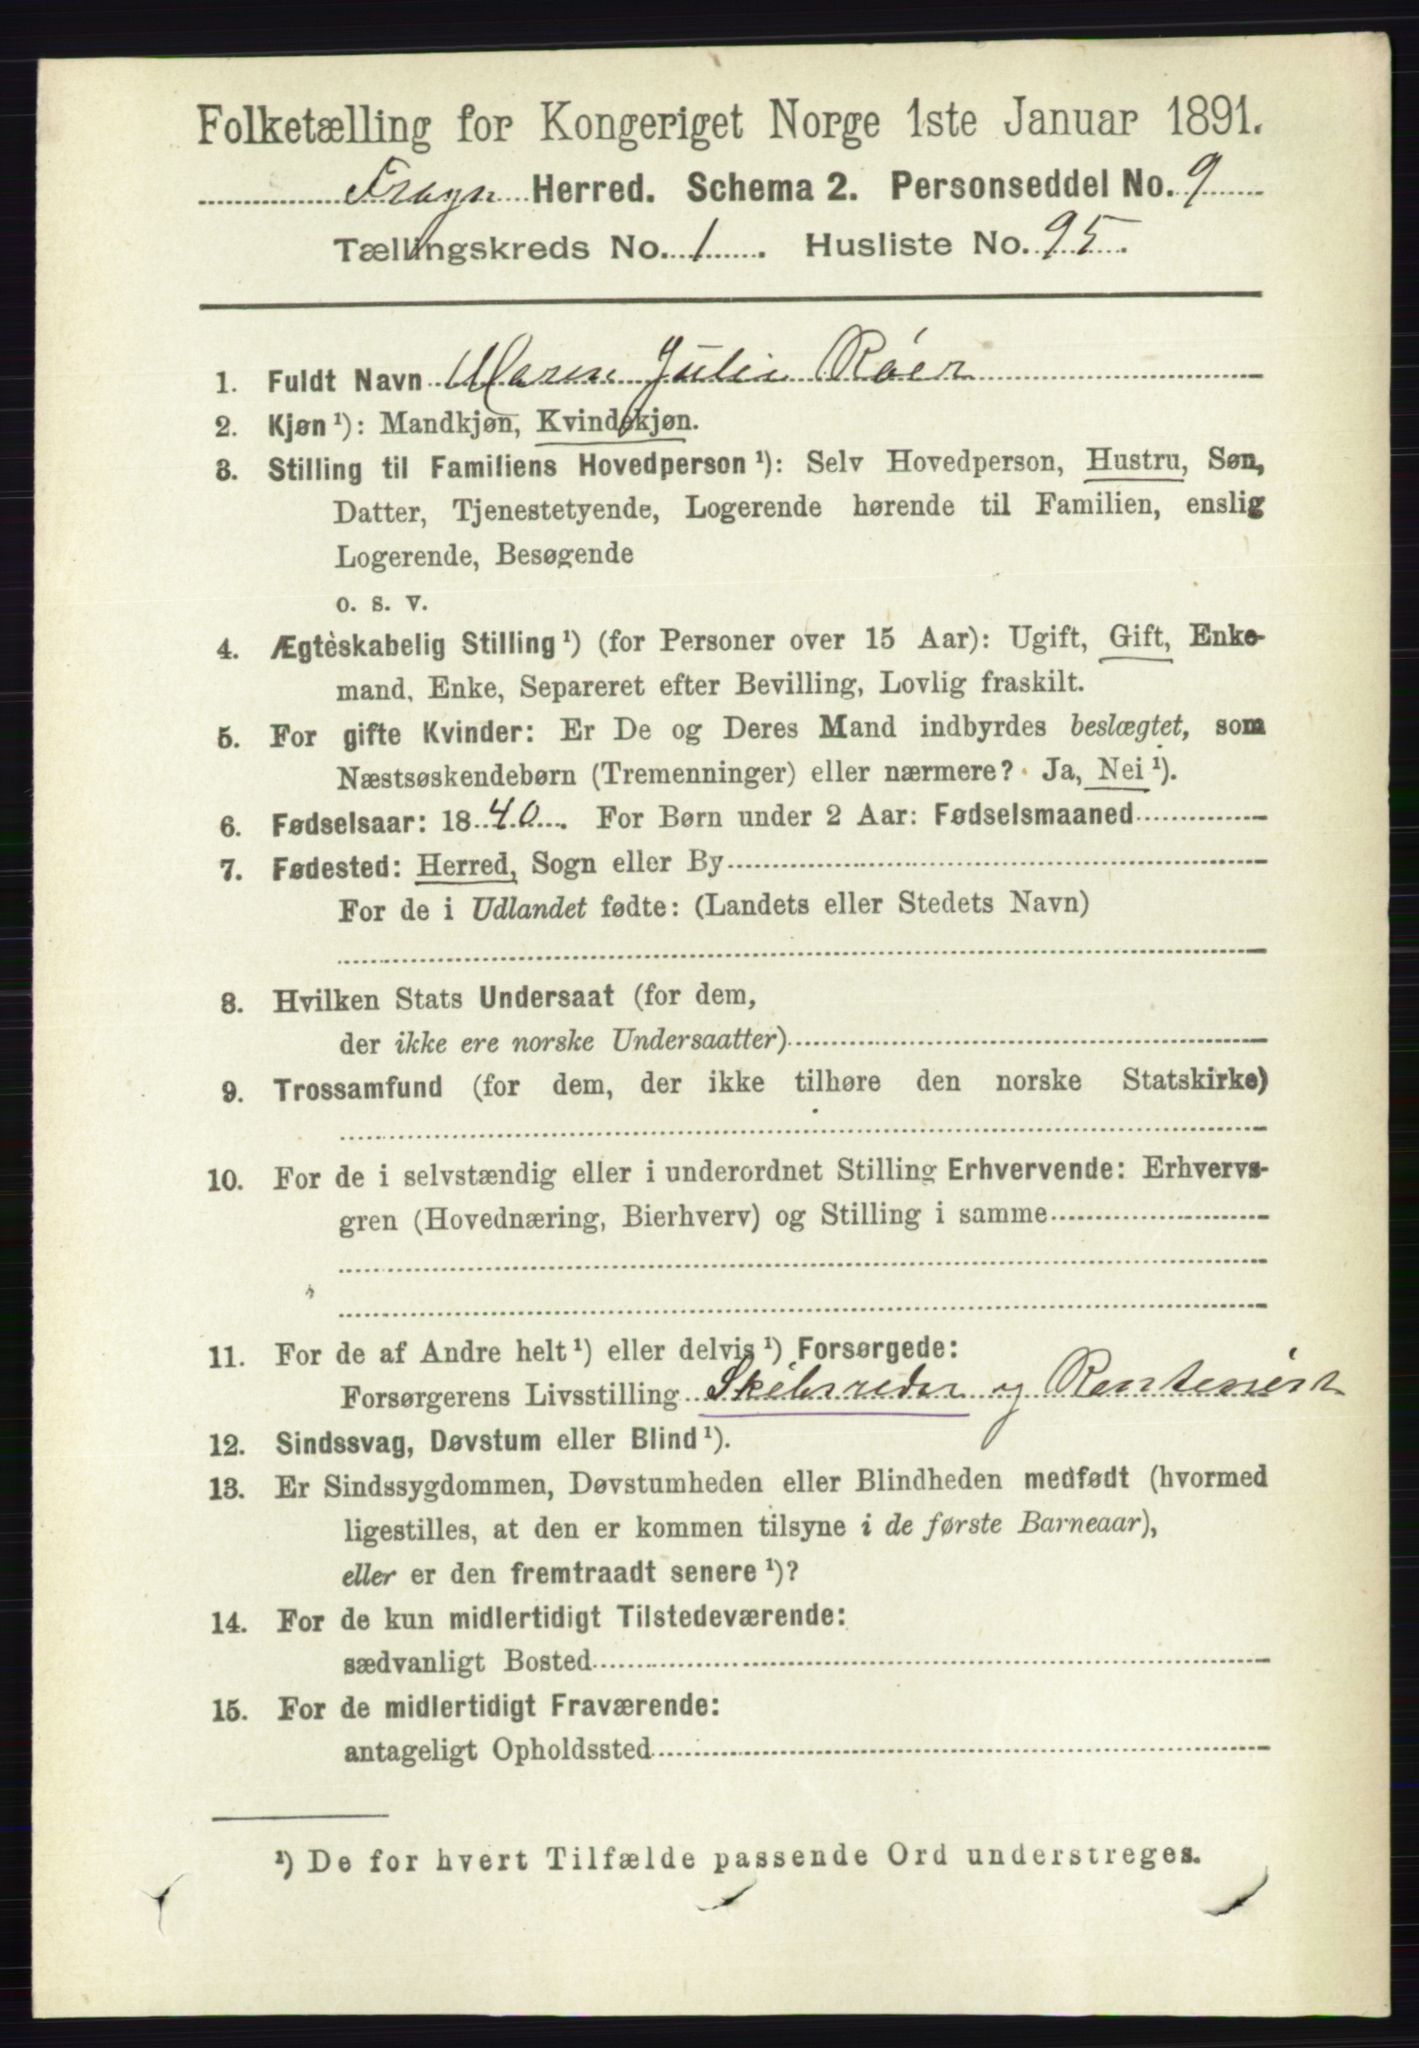 Folketælling for Kongeriget Norge 1ste Januar 1891.
Frogn Herred. Schema 2. Personseddel No. 9
Tællingskreds No. 1. Husliste No. 95.
1. Fuldt Navn Maren Julie Röer
2. Kjøn¹): Mandkjøn, Kvindekjøn.
3. Stilling til Familiens Hovedperson¹): Selv Hovedperson, Hustru, Søn,
Datter, Tjenestetyende, Logerende hørende til Familien, enslig
Logerende, Besøgende
o. s. v.
4. Ægteskabelig Stilling¹) (for Personer over 15 Aar): Ugift, Gift, Enke-
mand, Enke, Separeret efter Bevilling, Lovlig fraskilt.
5. For gifte Kvinder: Er De og Deres Mand indbyrdes beslægtet, som
Næstsøskendebørn (Tremenninger) eller nærmere? Ja, Nei¹).
6. Fødselsaar: 1840. For Børn under 2 Aar: Fødselsmaaned
7. Fødested: Herred, Sogn eller By
For de i Udlandet fødte: (Landets eller Stedets Navn)
8. Hvilken Stats Undersaat (for dem,
der ikke ere norske Undersaatter)
9. Trossamfund (for dem, der ikke tilhøre den norske Statskirke)
10. For de i selvstændig eller i underordnet Stilling Erhvervende: Erhvervs-
gren (Hovednæring, Bierhverv) og Stilling i samme
11. For de af Andre helt¹) eller delvis¹) Forsørgede:
Forsørgerens Livsstilling Skibsreder og Rentenist
12. Sindssvag, Døvstum eller Blind¹).
13. Er Sindssygdommen, Døvstumheden eller Blindheden medfødt (hvormed
ligestilles, at den er kommen tilsyne i de første Barneaar),
eller er den fremtraadt senere¹)?
14. For de kun midlertidigt Tilstedeværende:
sædvanligt Bosted
15. For de midlertidigt Fraværende:
antageligt Opholdssted
¹) De for hvert Tilfælde passende Ord understreges.